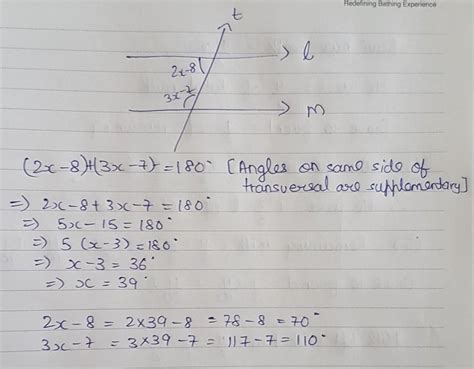 Redefining Bathing Experience
t
2x-8
l
3x-7
m
(2x-8)+(3x-7) = 180° [Angles on same side of
transversal are supplamentary]
=) 2x-8+3x-7 = 180°
=) 5x-15 = 180°
=) 5(x-3) = 180°
=) x-3 = 36°
=) x = 39°
2x-8 = 2×39-8 = 78-8 = 70°
3x-7 = 3×39-7 = 117-7 = 110°